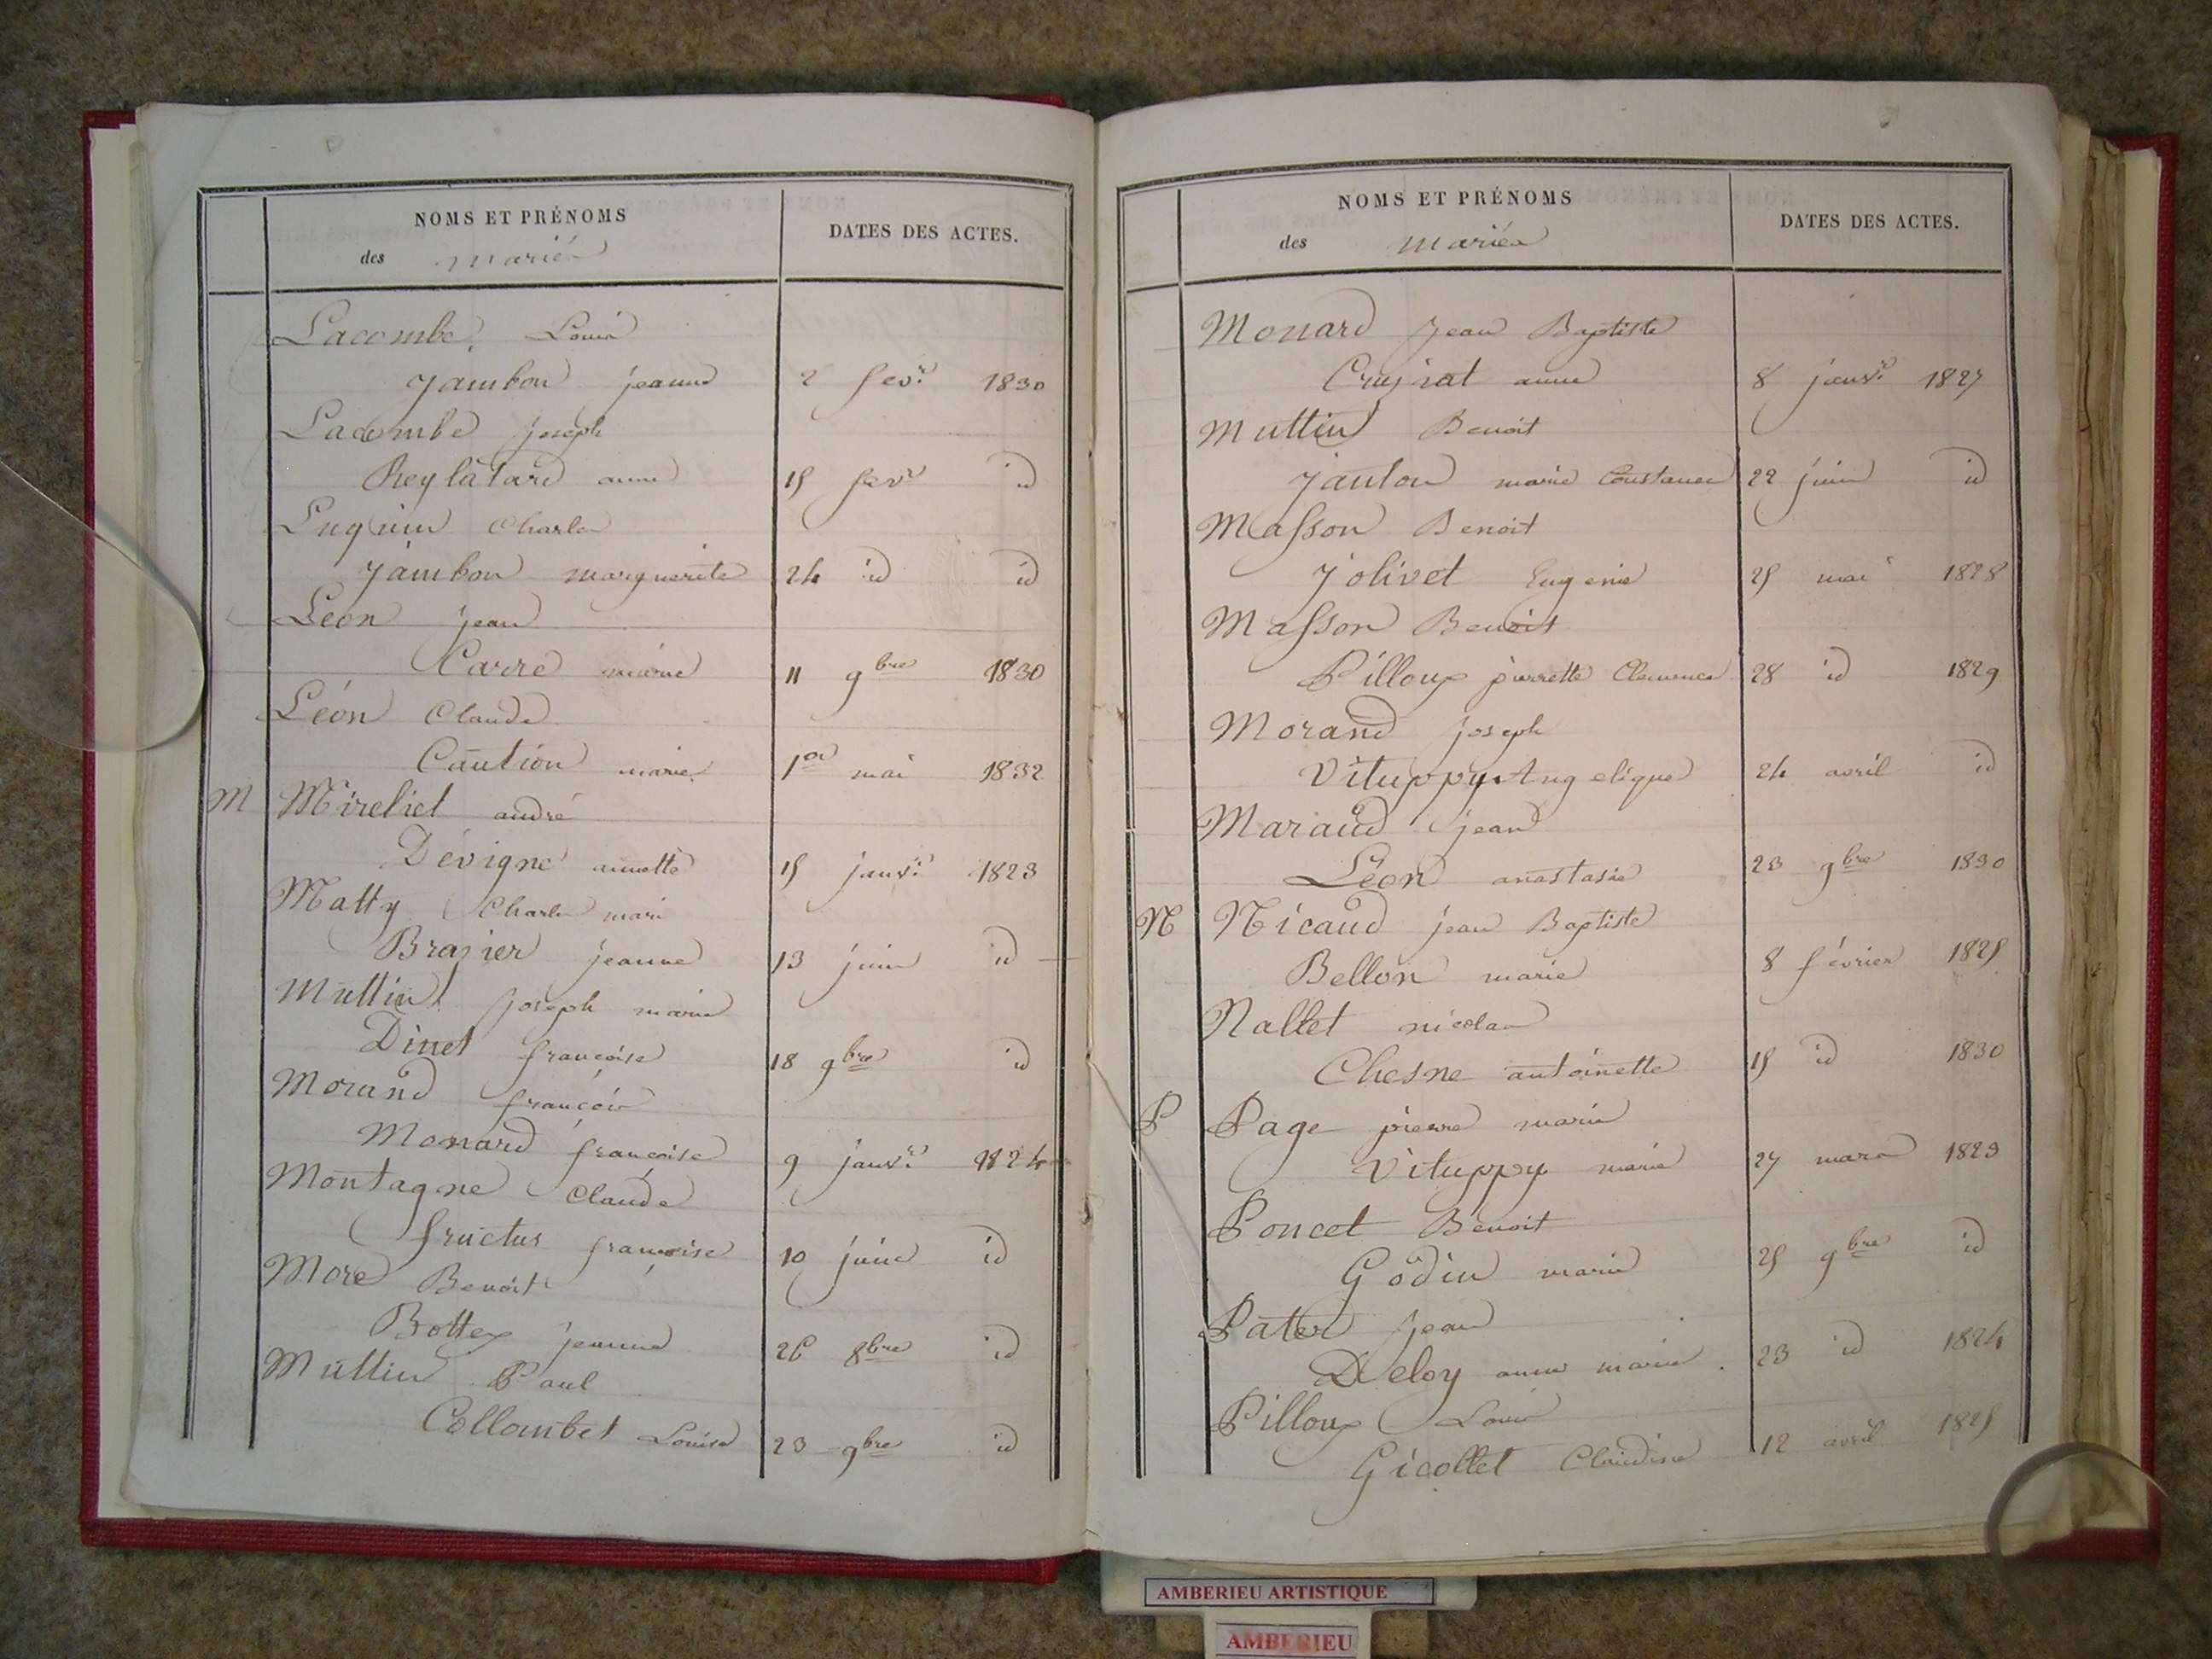 NOMS ET PRÉNOMS
des mariés
DATES DES ACTES.
Lacombe Louis
Jambon jeanne 2 fevr. 1830
Lacombe joseph
Reylatard anne 15 fevr id
Luquin Charles
Jambon marguerite 24 id id
Léon jean
Carre marie 11 9bre 1830
Léon Claude
Caution marie 1er mai 1832
M Mireliet andré
Dévigne annette 15 janvr. 1823
Matty Charles marie
Brazier jeanne 13 juin id
Muttin joseph marie
Dinet françoise 18 9bre id
Morand françois
Monard françoise 9 janvr. 1824
Montagne Claude
fructus françoise 10 juin id
More Benoit
Bottex jeanne 26 8bre id
Muttin Paul
Collombet Louise 23 9bre id
NOMS ET PRÉNOMS
des mariés
DATES DES ACTES.
Monard jean Baptiste
Crujat anne 8 janvr. 1827
Muttin Benoit
Janton marie Constance 22 juin id
Masson Benoit
Jolivet Eugenie 25 mai 1828
Masson Benoit
Pilloux pierrette Clemence 28 id 1829
Morand joseph
Vituppy Angelique 24 avril id
Maraud jean
Léon anastasie 23 9bre 1830
N Nicaud jean Baptiste
Bellon marie 8 février 1825
Nallet nicolas
Chesne antoinette 15 id 1830
P Page pierre marie
Vituppy marie 27 mars 1823
Poncet Benoit
Godin marie 25 9bre id
Pater jean
Deloy anne marie. 23 id 1824
Pilloux Louis
Gicollet Claudine 12 avril 1825
AMBERIEU ARTISTIQUE
AMBERIEU